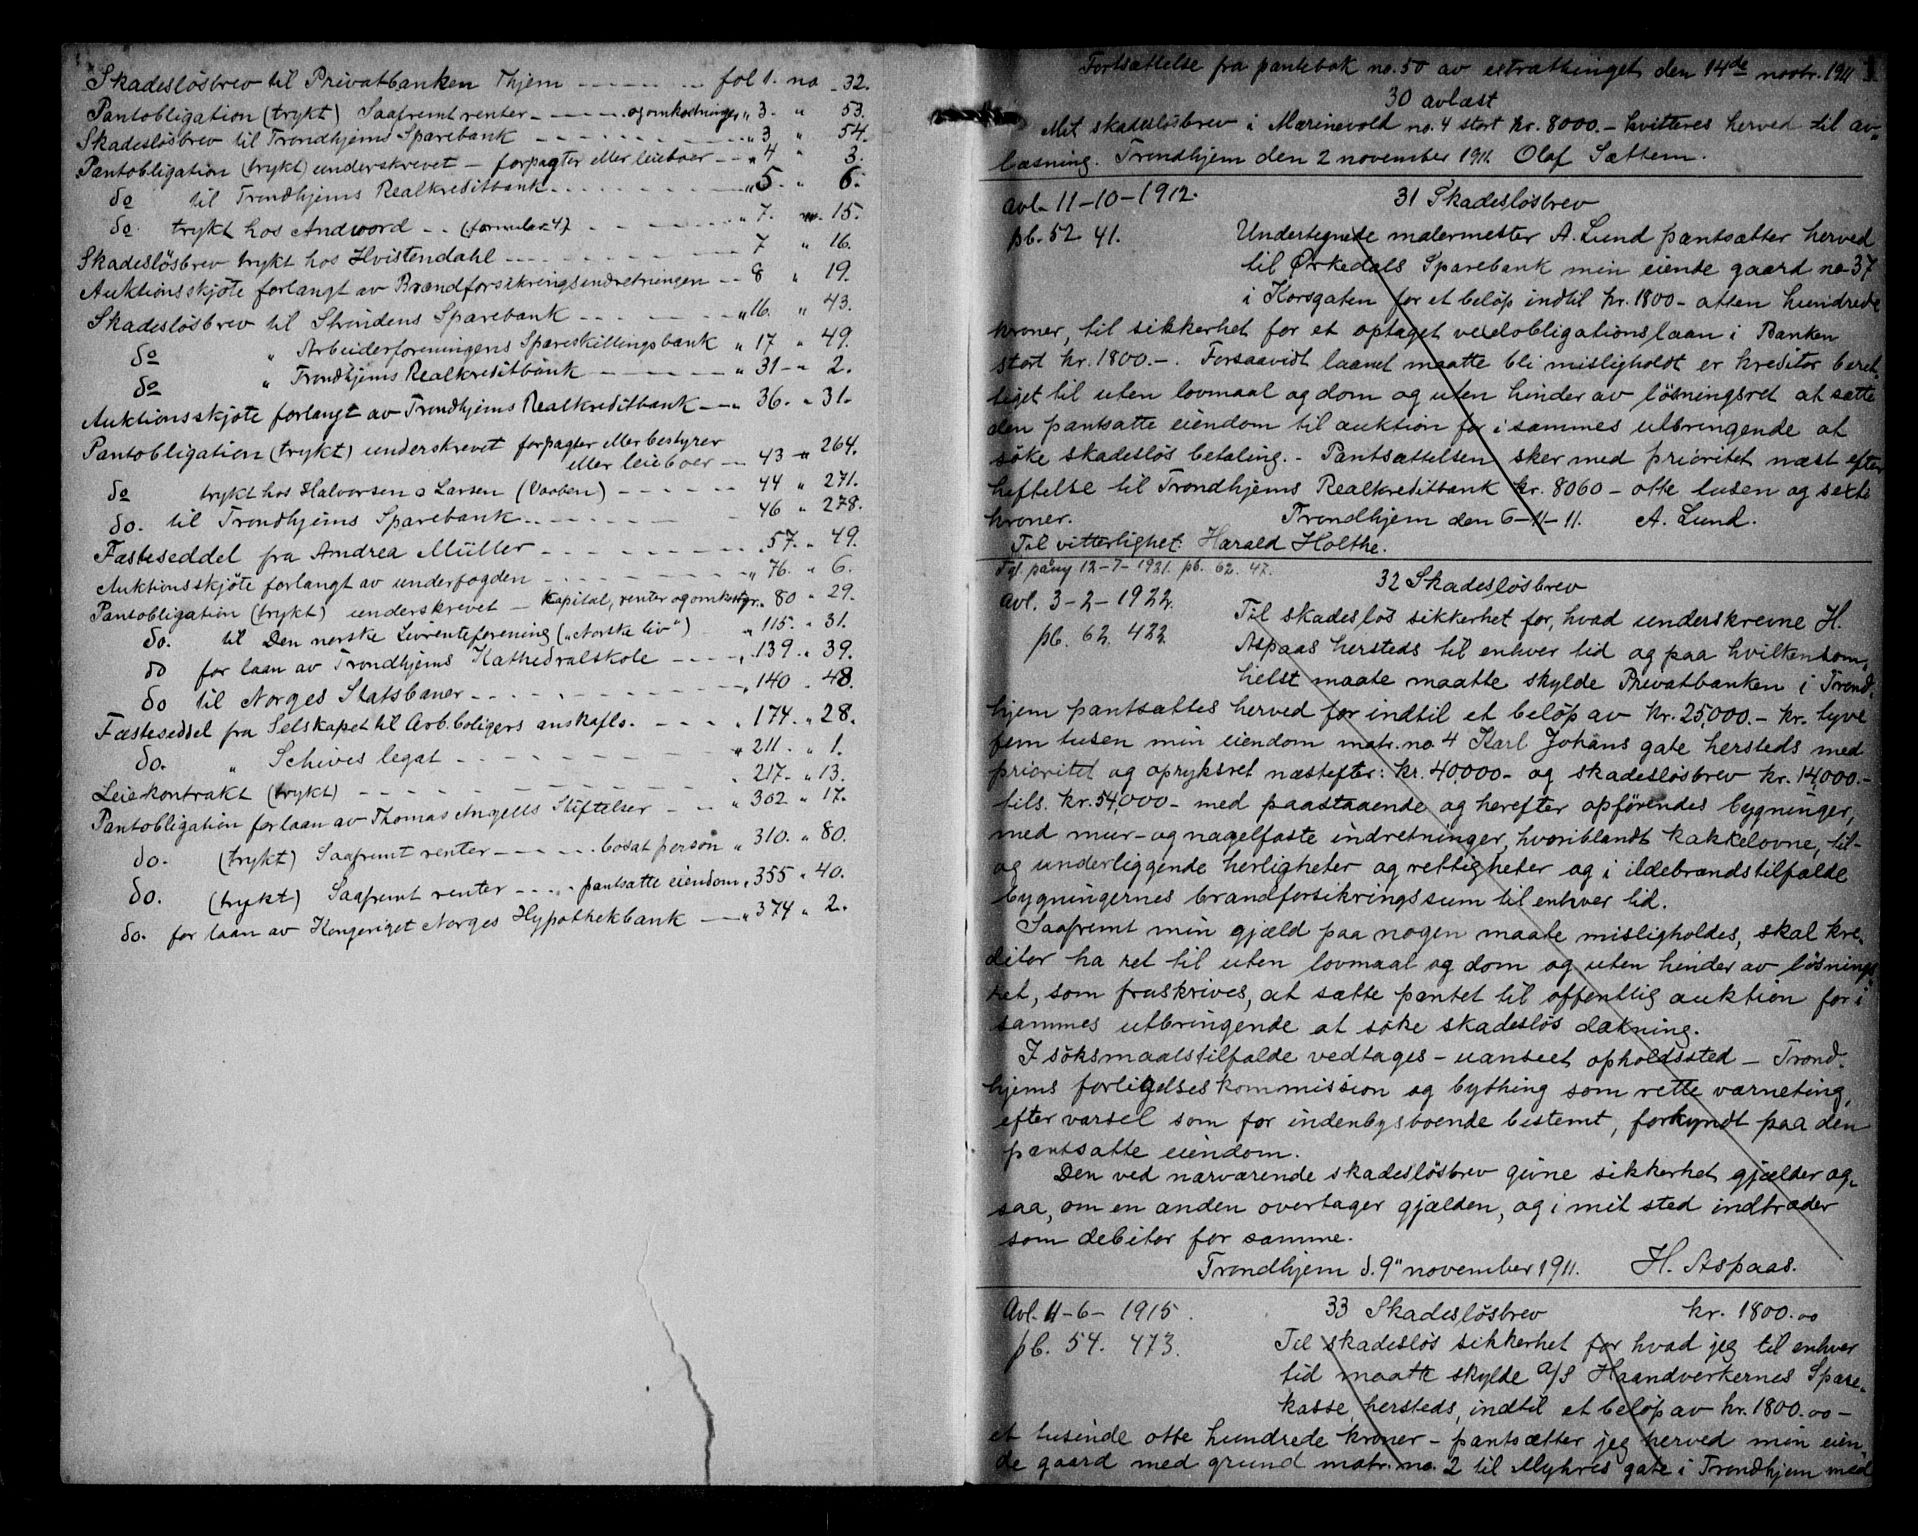 Skadesløsbrev til Privatbanken Thjem - - - - - - fol 1. no 32.
Pantobligation (trykt) Saafremt renter - - - - - og omkostninger " 3. " 53.
Skadesløsbrev til Trondhjems Sparebank - - - - - - - - " 3 " 54.
Pantobligation (trykt) underskrevet - forpagter eller leieboer - - " 4 " 3.
do til Trondhjems Realkreditbank - - - - - - - " 5 " 6.
do trykt hos Andvord - - (formular 4) - - - - - - " 7. " 15.
Skadesløsbrev trykt hos Hvistendahl - - - - - - - - 7 " 16.
Auktionsskjøte forlangt av Brandforsikringsindretningen - - 8 " 19.
Skadesløsbrev til Strindens Sparebank - - - - - - - " 16. " 43.
do " Arbeiderforeningens Spareskillingsbank " 17 " 49.
do " Trondhjems Realkreditbank - - - - - - " 31 - " 2.
Auktionsskjøte forlangt av Trondhjems Realkreditbank - - " 36. " 31.
Pantobligation (trykt) underskrevet forpagter eller bestyrer
eller leieboer - - 43 - " 264.
do trykt hos Halvorsen & Larsen (Varben) - - - - - 44 " 271.
do. til Trondhjems Sparebank - - - - - - 46 " 278.
Fæsteseddel fra Andrea Müller - - - - - - - - - " 57. " 49.
Auktionsskjøte forlangt av underfogden - - - - - - - - " 76. " 6.
Pantobligation (trykt) underskrevet - kapital, renter og omkostgr. " 80 " 29.
do. til Den norske Livrenteforening ("Norske liv") " 115. " 31.
do for laan av Trondhjems Kathedralskole - - - - " 139 " 39.
do til Norges Statsbaner - - - - - - - - - - " 140 " 48.
Fæsteseddel fra Selskapet til Arb.boligers anskafls. - - - - " 174. " 28.
do. " Schives legat - - - - - - - " 211. " 1.
Leiekontrakt (trykt) - - - - - - - - - - - - " 217. " 13.
Pantobligation for laan av Thomas Angells Stiftelser - - - " 302 " 17.
do. (trykt) Saafremt renter - - - - - - bosat person " 310. " 80.
do. (trykt) Saafremt renter - - - - pantsatte eiendom " 355 " 40.
do. for laan av Kongeriget Norges Hypothekbank - - " 374 " 2.
Fortsættelse fra pantebok no. 50 av estrattinget den 14de novbr. 1911
30 avlæst
Mit skadesløsbrev i Marinevold no. 4 stort kr. 8000.- kvitteres herved til av-
læsning. Trondhjem den 2 november 1911. Olaf Sættem.
avl. 11-10-1912.
pb. 52 41.
31 Skadesløsbrev
Undertegnede malermester A. Lund pantsætter herved
til Ørkedals Sparebank min eiende gaard no. 37
i Korsgaten for et beløp indtil kr. 1800- atten hundrede
kroner, til sikkerhet for et optaget vexelobligationslaan i Banken
stort kr. 1800.-. Forsaavidt laanet maatte bli misligholdt er kreditor beret-
tiget til uten lovmaal og dom og uten hinder av løsningsret at sætte
den pantsatte eiendom til auktion for i sammes utbringende at
søke skadesløs betaling. - Pantsættelsen sker med prioritet næst efter
heftelse til Trondhjems Realkreditbank kr. 8060 - otte tusen og seksti
kroner. Trondhjem den 6-11-11. A. Lund.
Til vitterlighet: Harald Holthe.
Tgl. paany 12-7-1921. pb. 62. 47.
avl. 3-2-1922.
pb. 62. 422.
32 Skadesløsbrev
Til skadesløs sikkerhet for, hvad underskrevne H.
Aspaas hersteds til enhver tid og paa hvilkensom-
helst maate maatte skylde Privatbanken i Trond-
hjem pantsættes herved for indtil et beløp av kr. 25,000.- kr. tyve
fem tusen min eiendom matr. no. 4 Karl Johans gate hersteds med
prioritet og opryksret næstefter: kr. 40,000- og skadesløsbrev kr. 14,000.-
tils. kr. 54,000- med paastaaende og herefter opførendes bygninger,
med mur- og nagelfaste indretninger, hvoriblandt kakkelovne, til-
og underliggende herligheter og rettigheter og i ildebrandstilfælde
bygningernes brandforsikringssum til enhver tid.
Saafremt min gjæld paa nogen maate misligholdes, skal kre-
ditor ha ret til uten lovmaal og dom og uten hinder av løsnings-
ret, som fraskrives, at sætte pantet til offentlig auktion for i
sammes utbringende at søke skadesløs dækning.
I søksmaalstilfælde vedtages - uanseet opholdssted - Trond-
hjems forligelseskommission og bything som rette værneting,
efter varsel som for indenbysboende bestemt, forkyndt paa den
pantsatte eiendom.
Den ved nærværende skadesløsbrev givne sikkerhet gjælder og-
saa, om en anden overtager gjælden, og i mit sted indtræder
som debitor for samme.
Trondhjem d. 9" november 1911. H. Aspaas.
Avl. 11-6-1915.
pb. 54. 473.
33 Skadesløsbrev kr. 1800.00
Til skadesløs sikkerhet for hvad jeg til enhver
tid maatte skylde A/S Haandverkernes Spare-
kasse, hersteds, indtil et beløp av kr. 1800.00 -
et tusinde otte hundrede kroner - pantsætter jeg herved min eien-
de gaard med grund matr. no. 2 til Myhres gate i Trondhjem med